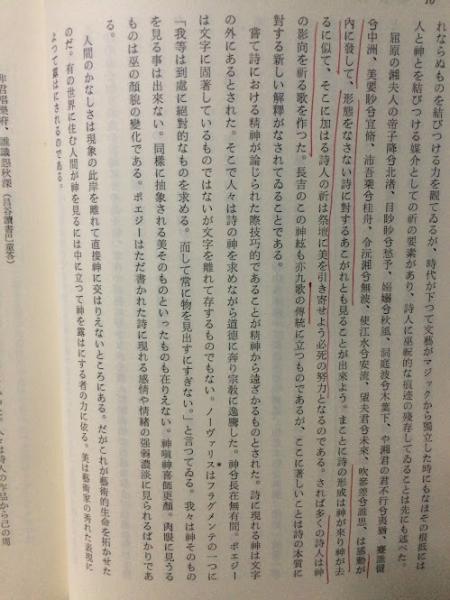 10
れならぬものを結びつける力を觀てゐるが、時代が下つて文藝がマジックから獨立した時にもなほその根抵には
人と神とを結びつける媒介としての祈の要素があり、詩人に巫祝的な痕迹の殘存してゐることは先にも述べた。
屈原の湘夫人の帝子降兮北渚、目眇眇兮愁予、嫋嫋兮秋風、洞庭波兮木葉下、や湘君の君不行兮夷猶、蹇誰留
兮中洲、美要眇兮宜脩、沛吾乘兮桂舟、令沅湘兮無波、使江水兮安波、望夫君兮未來、吹參差兮誰思、は感動が
内に發して、形態をなさない詩に對するあこがれとも見ることが出來よう。まことに詩の形成は神が來り神が去
るに似て、そこに加はる詩人の祈は祭壇に美を引き寄せよう必死の努力となるのである。されば多くの詩人は神
の影向を祈る歌を作つた。長吉のこの神絃も亦九歌の傳統に立つものであるが、ここに著しいことは詩の本質に
對する新しい解釋がなされてゐることである。
嘗て詩における精神が論じられた際技巧的であることが精神から遠ざかるものとされた。詩に現れる神は文字
の外にあるとされた。そこで人々は詩の神を求めながら道德に奔り宗教に逸騰した。神兮長在無有間。ポエジー
は文字に固著しているものではないが文字を離れて存するものでもない。ノーヴァリスはフラグメンテの一つに
「我等は到處に絕對的なものを求める。而して常に物を見出すにすぎない。」と言つてゐる。我々は神そのもの
を見る事は出來ない。同樣に抽象される美そのものといったものも在りえない。神嗔神喜師更顏。肉眼に見うる
ものは巫の顏貌の變化である。ポエジーはただ書かれた詩に現れる感情や情緒の強弱濃淡に見られるばかりであ
る。
人間のかなしさは現象の此岸を離れて直接神に交はりえないところにある。だがこれが藝術的生命を拓かせた
のだ。有の世界に住む人間が神を見るには中に立つて神を露はにする者の力に依る。美は藝術家の秀れた表現に
よつて露はにされるのである。